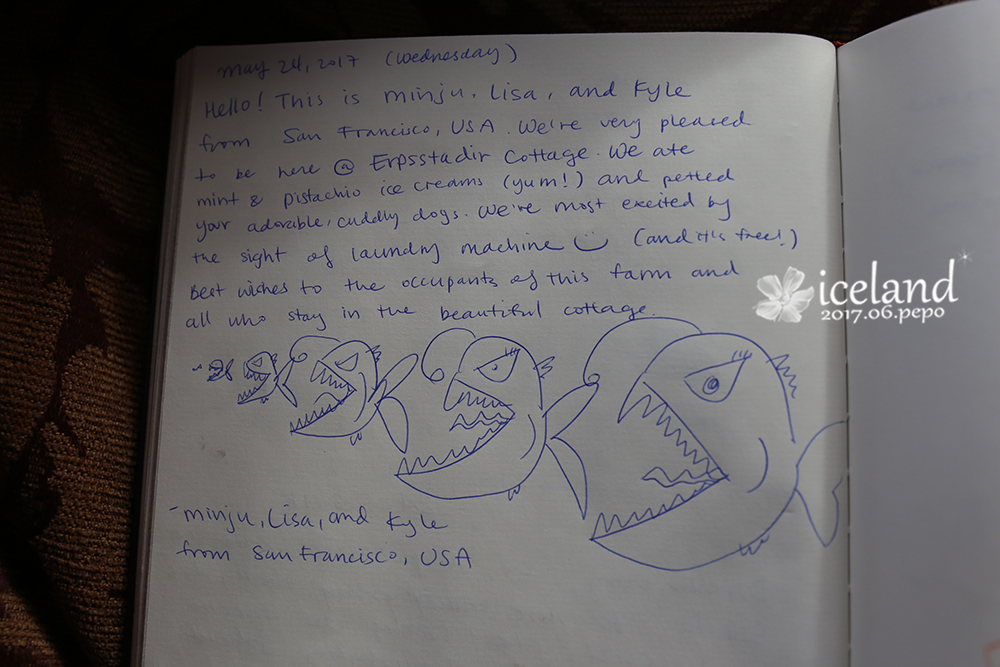 may 24, 2017 (Wednesday)
Hello! This is minju, Lisa, and Kyle
from San Francisco, USA. We're very pleased
to be here @ Erpsstadir Cottage. We ate
mint & pistachio ice creams (yum!) and petted
your adorable, cuddly dogs. We're most excited by
the sight of laundry machine (and it's free!)
Best wishes to the occupants of this farm and
all who stay in the beautiful cottage.
iceland
2017.06.pepo
-minju, Lisa, and Kyle
from San Francisco, USA